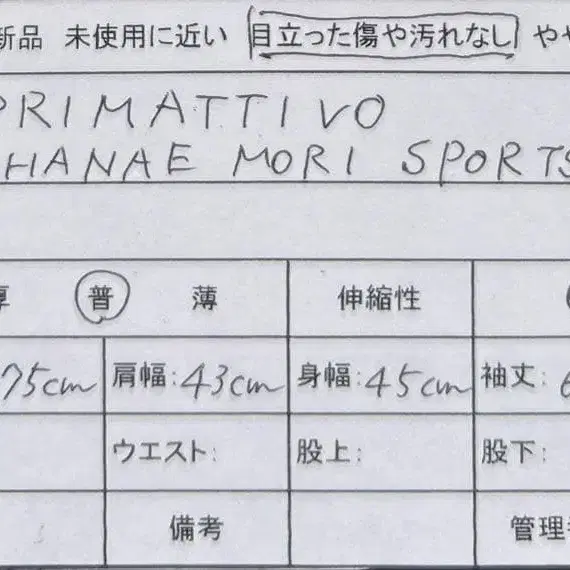 新品 未使用に近い 目立った傷や汚れなし やや
PRIMATTIVO
HANAE MORI SPORTS
厚 普 薄 伸縮性
75cm 肩幅:43cm 身幅:45cm 袖丈:
ウエスト: 股上: 股下:
備考 管理